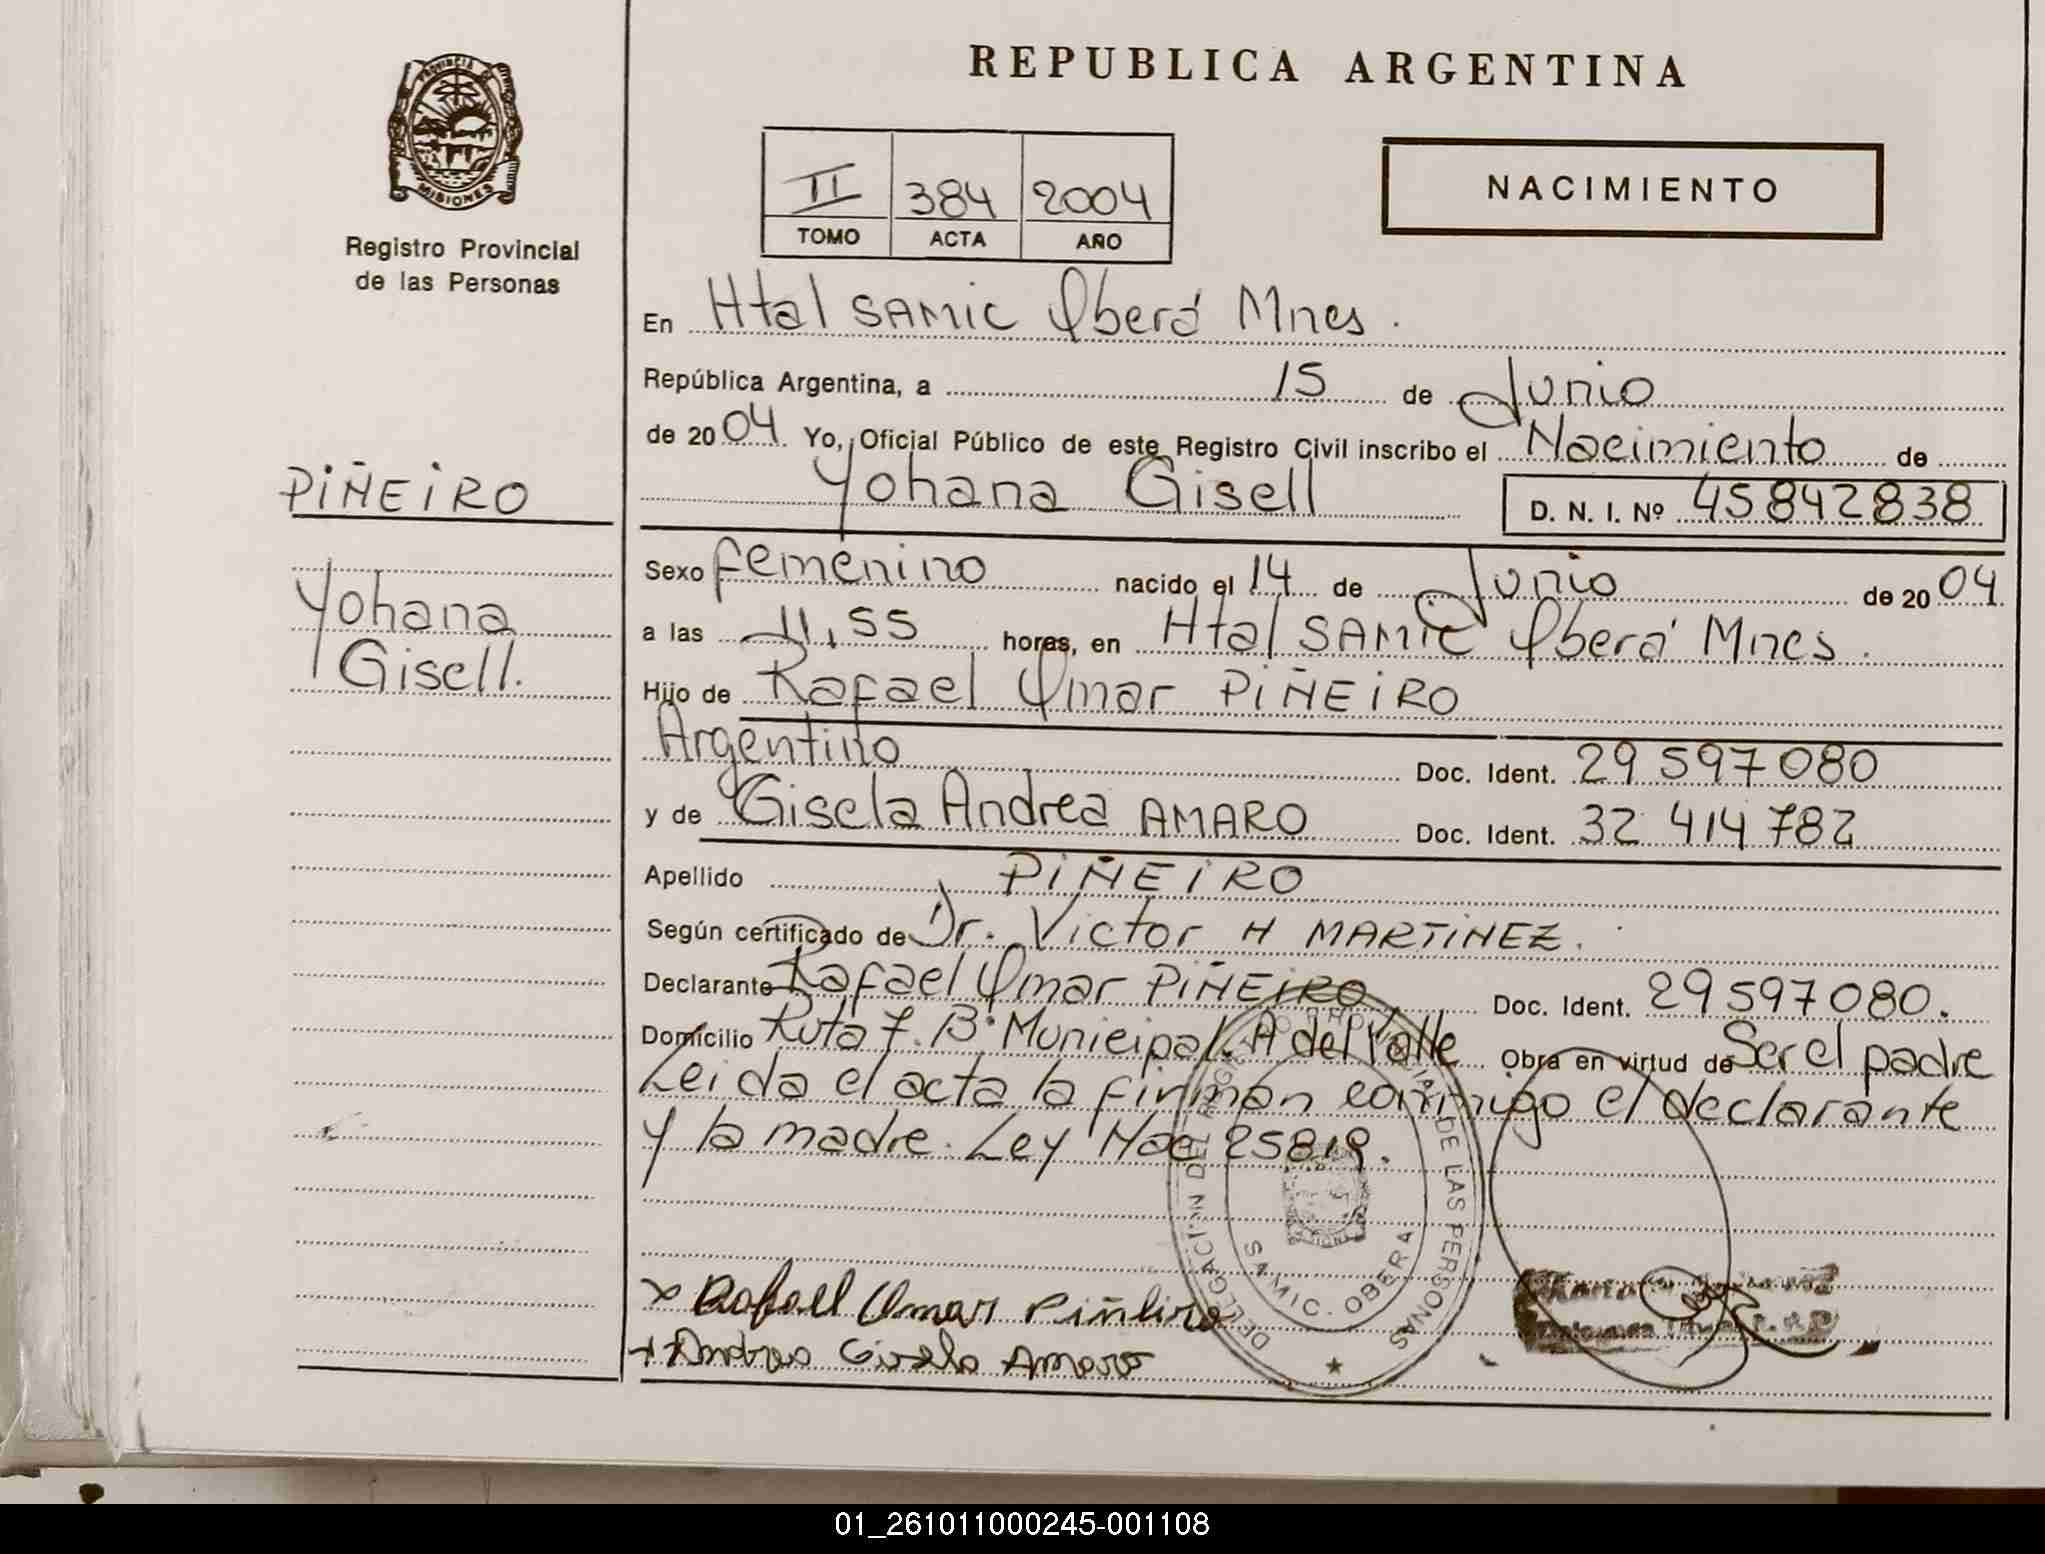 REPUBLICA ARGENTINA
PROVINCIA DE
MISIONES
Registro Provincial
de las Personas
II 384 2004
TOMO ACTA AÑO
NACIMIENTO
En Htal SAMIC Oberá Mnes.
República Argentina, a 15 de Junio
de 2004. Yo, Oficial Público de este Registro Civil inscribo el Nacimiento de
Yohana Gisell D. N. I. Nº 45842838
PIÑEIRO
Yohana
Gisell.
Sexo femenino nacido el 14 de Junio de 2004
a las 11,55 horas, en Htal SAMIC Oberá Mnes.
Hijo de Rafael Omar PIÑEIRO
Argentino Doc. Ident. 29 597 080
y de Gisela Andrea AMARO Doc. Ident. 32 414 782
Apellido PIÑEIRO
Según certificado de Dr. Victor H MARTINEZ.
Declarante Rafael Omar PIÑEIRO Doc. Ident. 29597080.
Domicilio Ruta 7. Bº Municipal. A del Valle Obra en virtud de Ser el padre
Leida el acta la firman conmigo el declarante
y la madre. Ley Nac 25819.
DE LAS PERSONAS
SAMIC - OBERA
x Rafael Omar Piñeiro
+ Andrea Gisela Amaro
01_261011000245-001108